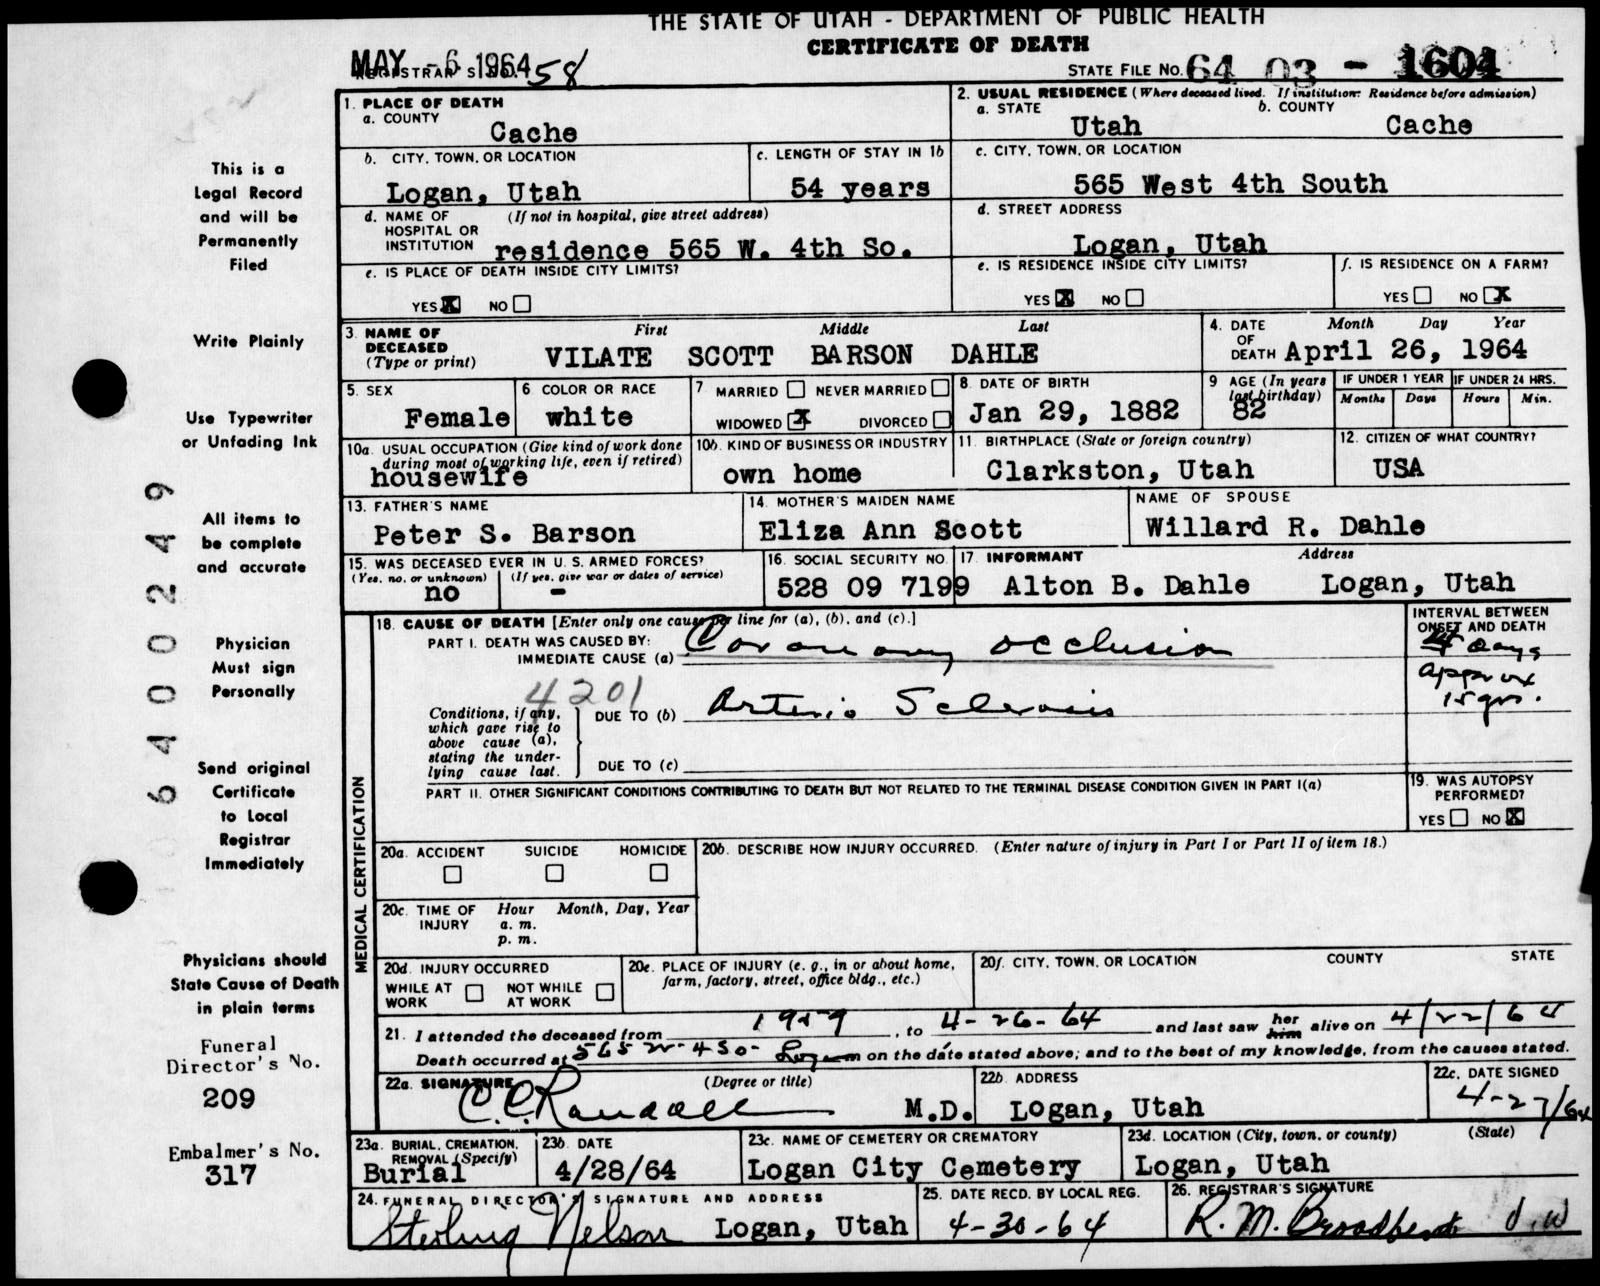 THE STATE OF UTAH - DEPARTMENT OF PUBLIC HEALTH
CERTIFICATE OF DEATH
MAY -6 1964
REGISTRAR'S NO. 58
STATE FILE NO. 64 03 - 1604
1. PLACE OF DEATH
a. COUNTY
Cache
2. USUAL RESIDENCE (Where deceased lived. If institution: Residence before admission)
a. STATE b. COUNTY
Utah Cache
b. CITY, TOWN, OR LOCATION
Logan, Utah
c. LENGTH OF STAY IN 1b
54 years
c. CITY, TOWN, OR LOCATION
565 West 4th South
d. NAME OF HOSPITAL OR INSTITUTION
(If not in hospital, give street address)
residence 565 W. 4th So.
d. STREET ADDRESS
Logan, Utah
e. IS PLACE OF DEATH INSIDE CITY LIMITS?
YES X NO
e. IS RESIDENCE INSIDE CITY LIMITS?
YES X NO
f. IS RESIDENCE ON A FARM?
YES NO X
3. NAME OF DECEASED
(Type or print)
First Middle Last
VILATE SCOTT BARSON DAHLE
4. DATE OF DEATH
Month Day Year
April 26, 1964
5. SEX
Female
6 COLOR OR RACE
white
7 MARRIED NEVER MARRIED
WIDOWED X DIVORCED
8. DATE OF BIRTH
Jan 29, 1882
9 AGE (In years last birthday)
82
IF UNDER 1 YEAR IF UNDER 24 HRS.
Months Days Hours Min.
10a. USUAL OCCUPATION (Give kind of work done
during most of working life, even if retired)
housewife
10b. KIND OF BUSINESS OR INDUSTRY
own home
11. BIRTHPLACE (State or foreign country)
Clarkston, Utah
12. CITIZEN OF WHAT COUNTRY?
USA
13. FATHER'S NAME
Peter S. Barson
14. MOTHER'S MAIDEN NAME
Eliza Ann Scott
NAME OF SPOUSE
Willard R. Dahle
15. WAS DECEASED EVER IN U. S. ARMED FORCES?
(Yes, no, or unknown) (If yes, give war or dates of service)
no -
16. SOCIAL SECURITY NO.
528 09 7199
17. INFORMANT Address
Alton B. Dahle Logan, Utah
18. CAUSE OF DEATH [Enter only one cause per line for (a), (b), and (c).]
PART I. DEATH WAS CAUSED BY:
IMMEDIATE CAUSE (a) Coronary occlusion
INTERVAL BETWEEN
ONSET AND DEATH
4 days
4201
Conditions, if any,
which gave rise to
above cause (a),
stating the under-
lying cause last.
DUE TO (b) Arterio Sclerosis
approx
15 yrs.
DUE TO (c)
PART II. OTHER SIGNIFICANT CONDITIONS CONTRIBUTING TO DEATH BUT NOT RELATED TO THE TERMINAL DISEASE CONDITION GIVEN IN PART I(a)
19. WAS AUTOPSY
PERFORMED?
YES NO X
MEDICAL CERTIFICATION
20a. ACCIDENT SUICIDE HOMICIDE
20b. DESCRIBE HOW INJURY OCCURRED. (Enter nature of injury in Part I or Part II of item 18.)
20c. TIME OF INJURY
Hour Month, Day, Year
a. m.
p. m.
20d. INJURY OCCURRED
WHILE AT WORK NOT WHILE AT WORK
20e. PLACE OF INJURY (e. g., in or about home,
farm, factory, street, office bldg., etc.)
20f. CITY, TOWN, OR LOCATION COUNTY STATE
21. I attended the deceased from 1959, to 4-26-64 and last saw her him alive on 4/22/64
Death occurred at 565 W. 4 So. Logan on the date stated above; and to the best of my knowledge, from the causes stated.
22a. SIGNATURE (Degree or title)
C. C. Randall M.D.
22b. ADDRESS
Logan, Utah
22c. DATE SIGNED
4-27/64
23a. BURIAL, CREMATION,
REMOVAL (Specify)
Burial
23b. DATE
4/28/64
23c. NAME OF CEMETERY OR CREMATORY
Logan City Cemetery
23d. LOCATION (City, town, or county) (State)
Logan, Utah
24. FUNERAL DIRECTOR'S SIGNATURE AND ADDRESS
Sterling Nelson Logan, Utah
25. DATE RECD. BY LOCAL REG.
4-30-64
26. REGISTRAR'S SIGNATURE
R. M. Broadbent
This is a
Legal Record
and will be
Permanently
Filed
Write Plainly
Use Typewriter
or Unfading Ink
All items to
be complete
and accurate
Physician
Must sign
Personally
Send original
Certificate
to Local
Registrar
Immediately
Physicians should
State Cause of Death
in plain terms
Funeral
Director's No.
209
Embalmer's No.
317
64 00249